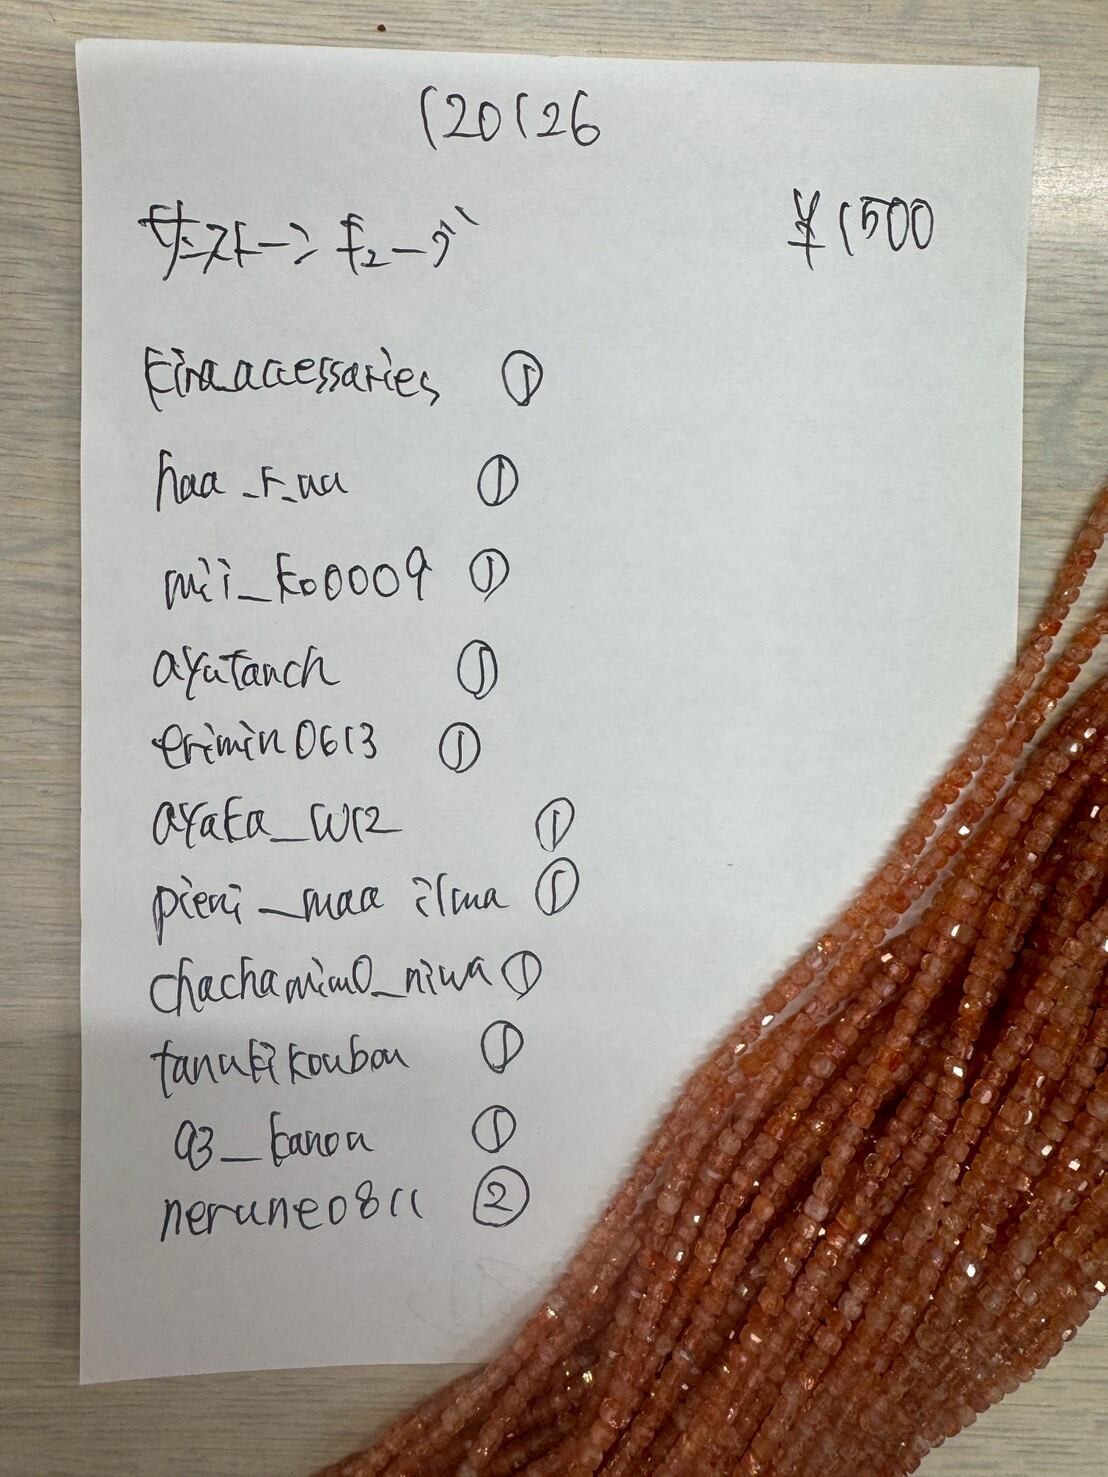 120126
サンストーンキューブ ¥1500
kira_accessaries ①
haa_r_uu ①
mii_ko0009 ①
ayatanch ①
erimin0613 ①
ayaka_w12 ①
pieni_maa ilma ①
chachamimo_niwa ①
tanukikoubou ①
a3_kanon ①
nerune0811 ②